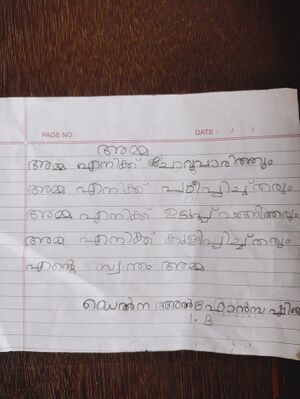 PAGE NO :
DATE : / /
അമ്മ
അമ്മ എനിക്ക് ചോറുവാരിത്തരും
അമ്മ എനിക്ക് പഠിപ്പിച്ചു തരും
അമ്മ എനിക്ക് ഉടുപ്പ് വാങ്ങിത്തരും
അമ്മ എനിക്ക് കുളിപ്പിച്ച് തരും
എന്റെ സ്വന്തം അമ്മ
ഡെൽന അൽഫോൻസ
1. B